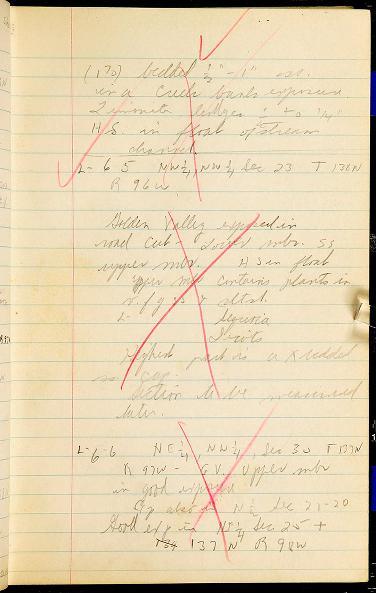 (170) bedded ½" - 1" ss.
in a Creek bank exposure
Limonite ledges ¼"
H.S. in float of stream
channel
L-65 NW¼, NW¼ Sec 23 T 138N
R 96W
Golden Valley exposed in
road cut - lower mbr. ss
upper mbr. HS in float
upper mbr contains plants in
v.f.g.
L- Sequoia
Dicots
Highest part is a X bedded
ss cap.
Section to be measured
later.
L-6-6 NE¼, NW¼, Sec 30 T 137N
R 97W - GV. Upper mbr
in good exposure
Exp also in N½ Sec 21-20
Good exp in NE¼ Sec 25 +
137 N R 98W